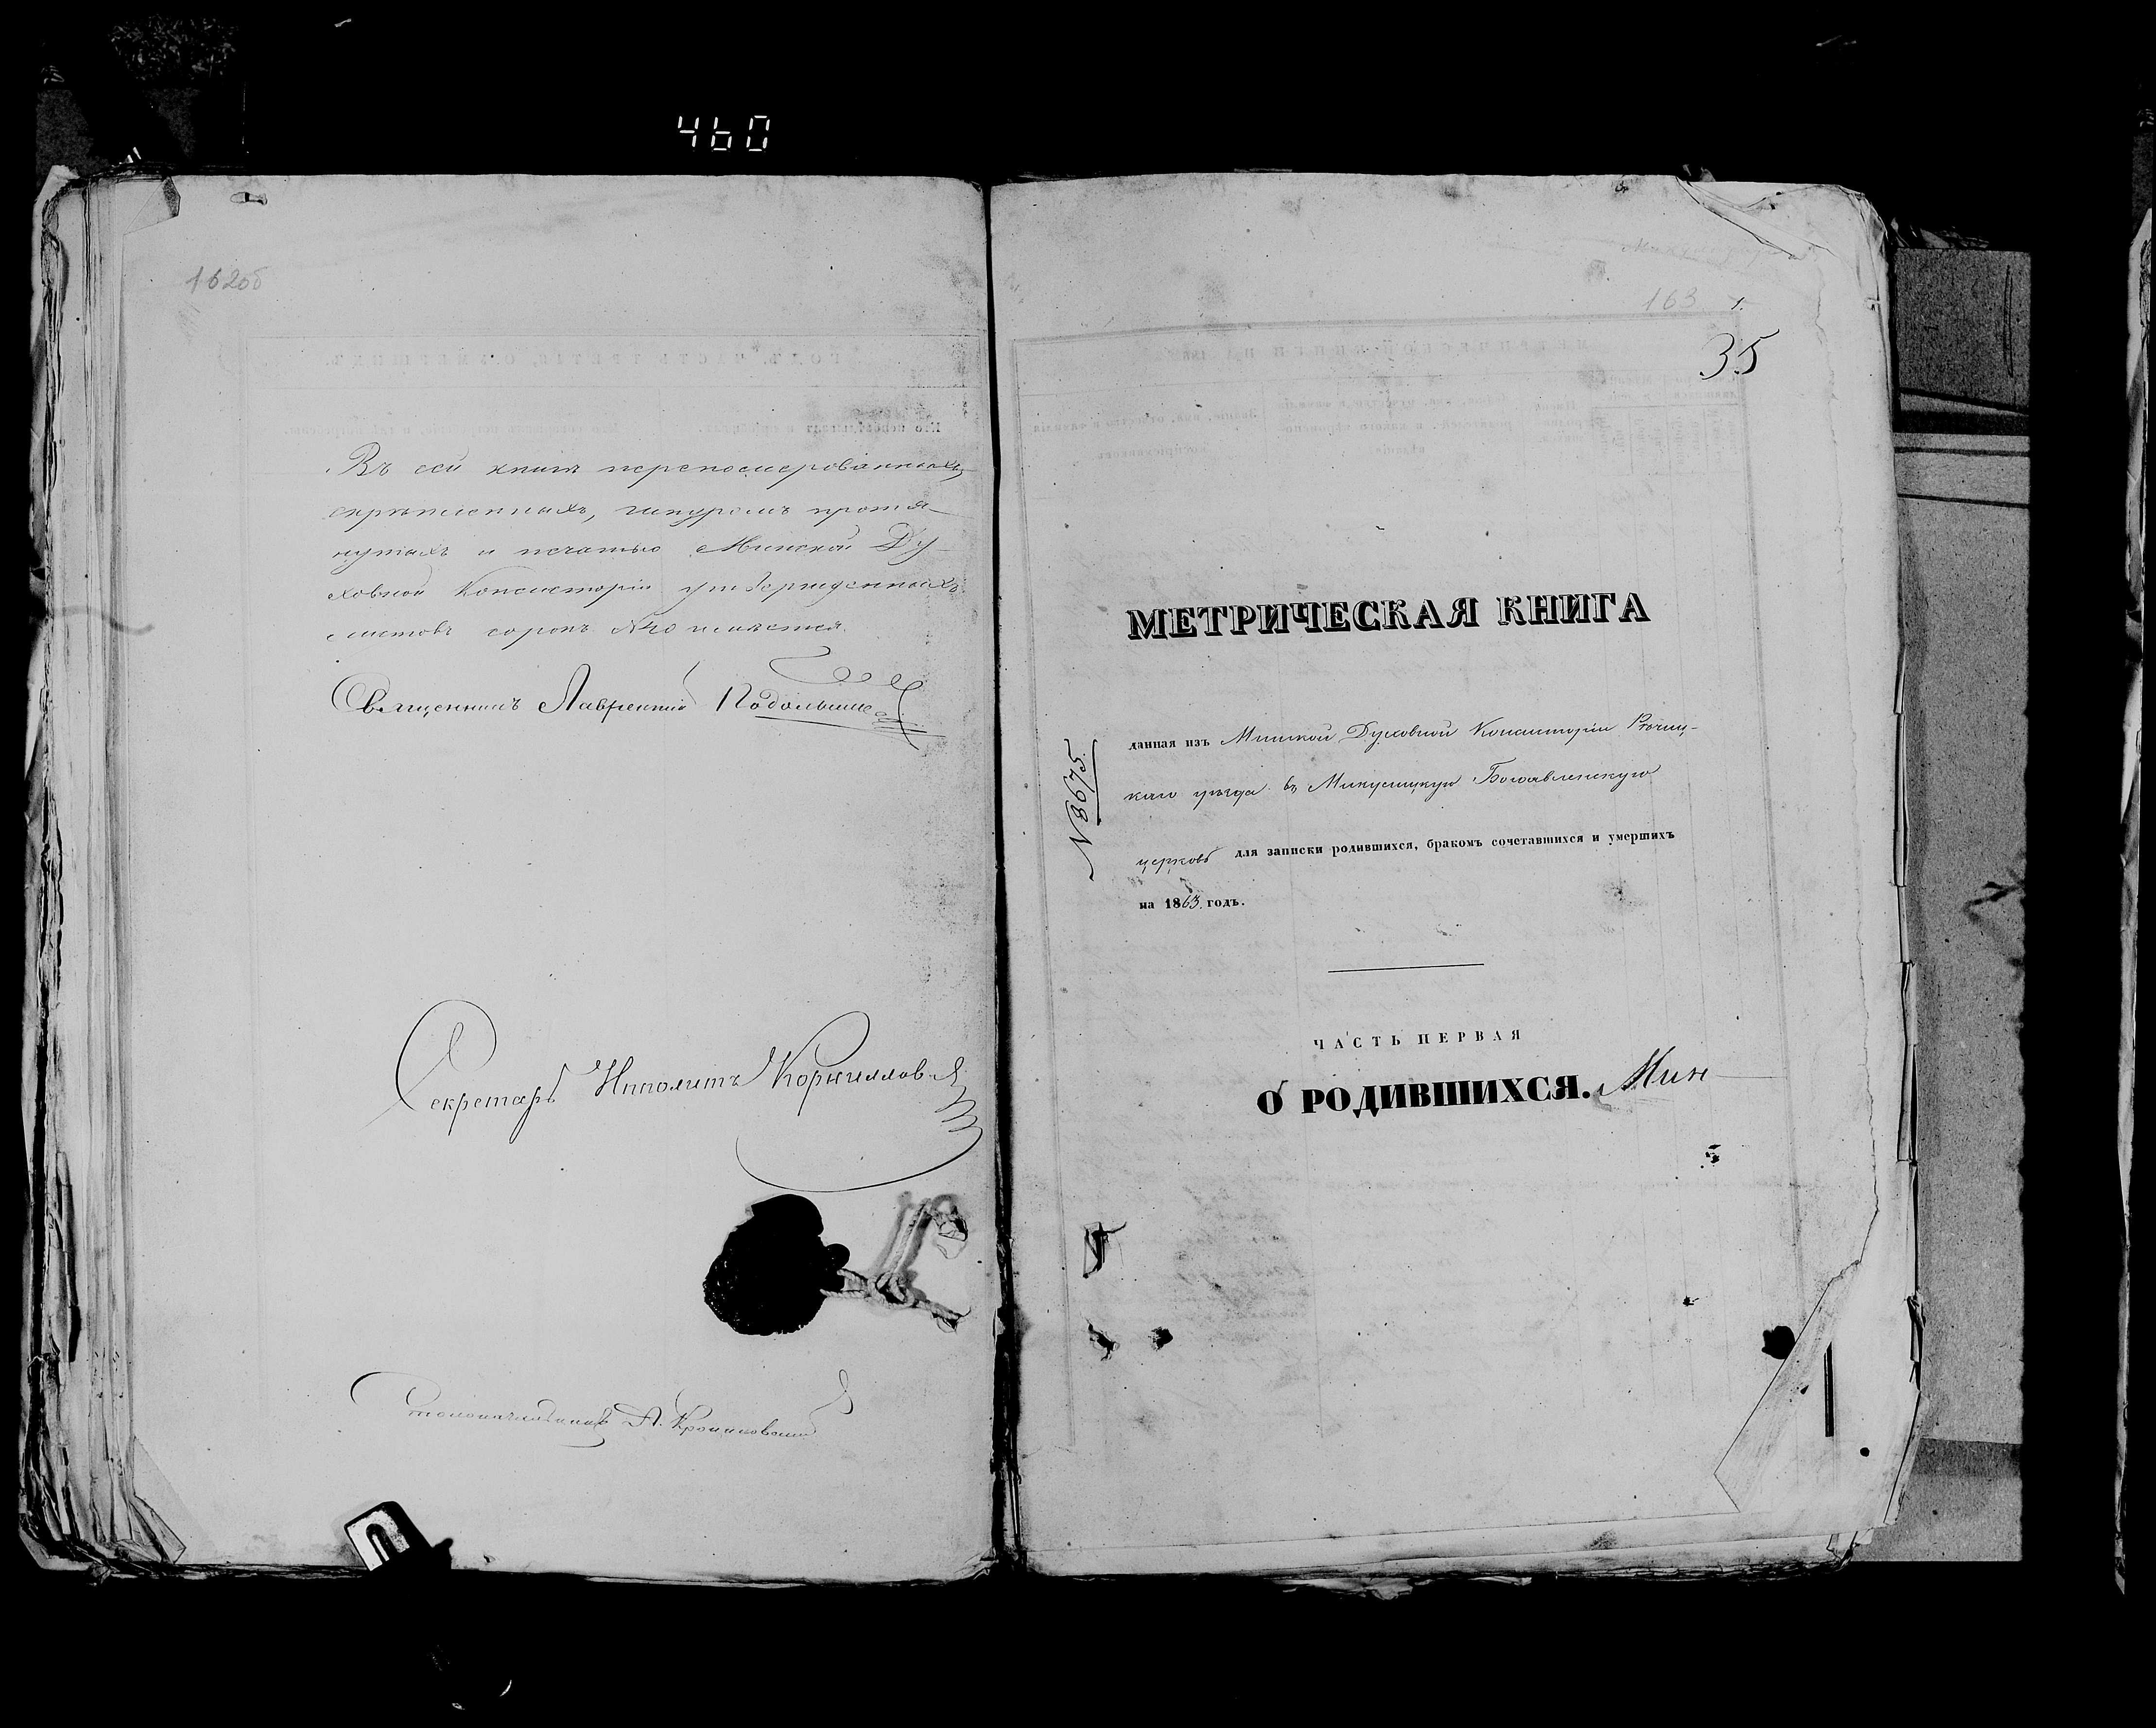 460
162об
Въ сей книгѣ перенумерованныхъ,
скрѣпленныхъ, шнуромъ протя-
нутыхъ и печатью Минской Ду-
ховной Консисторіи утвержденныхъ
листовъ сорокъ №40 имѣется.
Священникъ Лаврентій
Секретарь Ипполитъ Корниллов
Столоначальникъ А.
163 1.
35
МЕТРИЧЕСКАЯ КНИГА
данная изъ Минской Духовной Консисторіи Рѣчиц-
каго уѣзда въ Микулицкую Богоявленскую
церковь для записки родившихся, бракомъ сочетавшихся и умершихъ
на 1863 годъ.
№ 8675.
ЧАСТЬ ПЕРВАЯ
О РОДИВШИХСЯ. Мин-